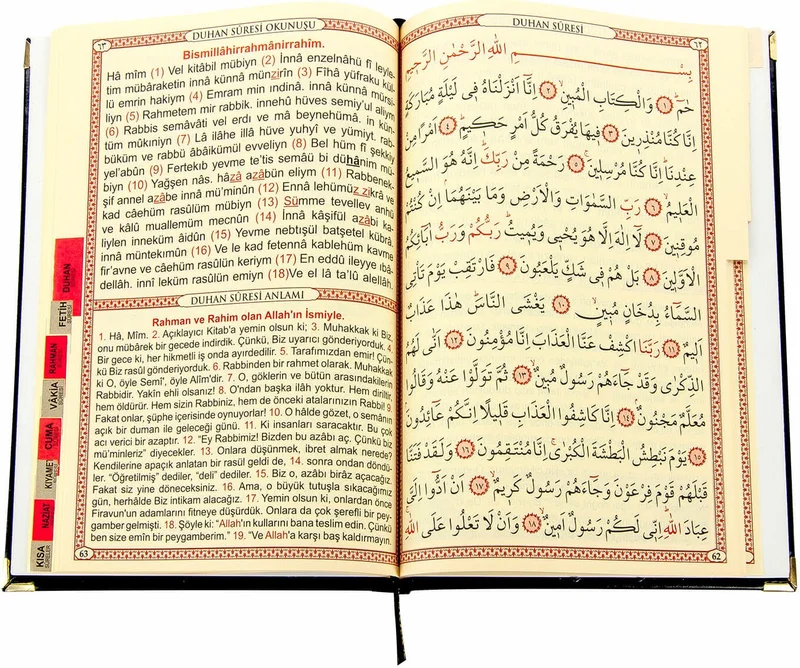 DUHAN SÛRESİ
٦٢
بِسْمِ اللّٰهِ الرَّحْمٰنِ الرَّحِيمِ
حٰمٓ ﴿١﴾ وَالْكِتَابِ الْمُبِينِ ﴿٢﴾ اِنَّٓا اَنْزَلْنَاهُ فِى لَيْلَةٍ مُبَارَكَةٍ
اِنَّا كُنَّا مُنْذِرِينَ ﴿٣﴾ فِيهَا يُفْرَقُ كُلُّ اَمْرٍ حَكِيمٍ ﴿٤﴾ اَمْرًا مِنْ
عِنْدِنَا اِنَّا كُنَّا مُرْسِلِينَ ﴿٥﴾ رَحْمَةً مِنْ رَبِّكَ اِنَّهُ هُوَ السَّمِيعُ
الْعَلِيمُ ﴿٦﴾ رَبِّ السَّمٰوَاتِ وَالْاَرْضِ وَمَا بَيْنَهُمَا اِنْ كُنْتُمْ
مُوقِنِينَ ﴿٧﴾ لَٓا اِلٰهَ اِلَّا هُوَ يُحْيِى وَيُمِيتُ رَبُّكُمْ وَرَبُّ اٰبَٓائِكُمُ
الْاَوَّلِينَ ﴿٨﴾ بَلْ هُمْ فِى شَكٍّ يَلْعَبُونَ ﴿٩﴾ فَارْتَقِبْ يَوْمَ تَأْتِى
السَّمَٓاءُ بِدُخَانٍ مُبِينٍ ﴿١٠﴾ يَغْشَى النَّاسَ هٰذَا عَذَابٌ
اَلِيمٌ ﴿١١﴾ رَبَّنَا اكْشِفْ عَنَّا الْعَذَابَ اِنَّا مُؤْمِنُونَ ﴿١٢﴾ اَنّٰى لَهُمُ
الذِّكْرٰى وَقَدْ جَٓاءَهُمْ رَسُولٌ مُبِينٌ ﴿١٣﴾ ثُمَّ تَوَلَّوْا عَنْهُ وَقَالُوا
مُعَلَّمٌ مَجْنُونٌ ﴿١٤﴾ اِنَّا كَاشِفُوا الْعَذَابِ قَلِيلًا اِنَّكُمْ عَٓائِدُونَ
﴿١٥﴾ يَوْمَ نَبْطِشُ الْبَطْشَةَ الْكُبْرٰى اِنَّا مُنْتَقِمُونَ ﴿١٦﴾ وَلَقَدْ فَتَنَّا
قَبْلَهُمْ قَوْمَ فِرْعَوْنَ وَجَٓاءَهُمْ رَسُولٌ كَرِيمٌ ﴿١٧﴾ اَنْ اَدُّٓوا اِلَىَّ
عِبَادَ اللّٰهِ اِنِّى لَكُمْ رَسُولٌ اَمِينٌ ﴿١٨﴾ وَاَنْ لَا تَعْلُوا عَلَى اللّٰهِ
62
٦٣
DUHAN SÛRESİ OKUNUŞU
Bismillâhirrahmânirrahîm.
Hâ mîm (1) Vel kitâbil mübiyn (2) İnnâ enzelnâhü fî leyle-
tim mübâraketin innâ künnâ münzirîn (3) Fîhâ yüfraku kül-
lü emrin hakiym (4) Emram min ındinâ. innâ künnâ mürsi-
liyn (5) Rahmetem mir rabbik. innehû hüves semiy'ul aliym
(6) Rabbis semâvâti vel erdı ve mâ beynehümâ. in kün-
tüm mûkıniyn (7) Lâ ilâhe illâ hüve yuhyî ve yümiyt, rab-
büküm ve rabbü âbâikümül evveliyn (8) Bel hüm fî şekkiy
yel'abûn (9) Fertekıb yevme te'tis semâü bi dühânim mü-
biyn (10) Yağşen nâs. hâzâ azâbün eliym (11) Rabbenek-
şif annel azâbe innâ mü'minûn (12) Ennâ lehümüz zikrâ ve
kad câehüm rasûlüm mübiyn (13) Sümme tevellev anhü
ve kâlû muallemüm mecnûn (14) İnnâ kâşifül azâbi ka-
liylen inneküm âidûn (15) Yevme nebtışül batşetel kübrâ,
innâ müntekımûn (16) Ve le kad fetennâ kablehüm kavme
fir'avne ve câehüm rasûlün keriym (17) En eddû ileyye ıbâ-
dellâh. innî leküm rasûlün emiyn (18)Ve el lâ ta'lû alellâh.
DUHAN SÛRESİ ANLAMI
Rahman ve Rahim olan Allah'ın İsmiyle.
1. Hâ, Mîm. 2. Açıklayıcı Kitab'a yemin olsun ki; 3. Muhakkak ki Biz,
onu mübârek bir gecede indirdik. Çünkü, Biz uyarıcı gönderiyorduk. 4.
Bir gece ki, her hikmetli iş onda ayırdedilir. 5. Tarafımızdan emir! Çün-
kü Biz rasûl gönderiyorduk. 6. Rabbinden bir rahmet olarak. Muhakkak
ki O, öyle Semî', öyle Alîm'dir. 7. O, göklerin ve bütün arasındakilerin
Rabbidir. Yakîn ehli olsanız! 8. O'ndan başka ilâh yoktur. Hem diriltir,
hem öldürür. Hem sizin Rabbiniz, hem de önceki atalarınızın Rabbi! 9.
Fakat onlar, şüphe içerisinde oynuyorlar! 10. O hâlde gözet, o semânın
açık bir duman ile geleceği günü. 11. Ki insanları saracaktır. Bu çok
acı verici bir azaptır. 12. "Ey Rabbimiz! Bizden bu azâbı aç. Çünkü biz
mü'minleriz" diyecekler. 13. Onlara düşünmek, ibret almak nerede?
Kendilerine apaçık anlatan bir rasül geldi de, 14. sonra ondan döndü-
ler. "Öğretilmiş" dediler, "deli" dediler. 15. Biz o, azâbı biraz açacağız.
Fakat siz yine döneceksiniz. 16. Ama, o büyük tutuşla sıkacağımız
gün, herhâlde Biz intikam alacağız. 17. Yemin olsun ki, onlardan önce
Firavun'un adamlarını fitneye düşürdük. Onlara da çok şerefli bir pey-
gamber gelmişti. 18. Şöyle ki: "Allah'ın kullarını bana teslim edin. Çünkü
ben size emin bir peygamberim." 19. "Ve Allah'a karşı baş kaldırmayın.
63
DUHAN
FETİH
RAHMAN
VÂKIA
CUMA
KIYAMET
NAZİAT
KISA
SÛRELER